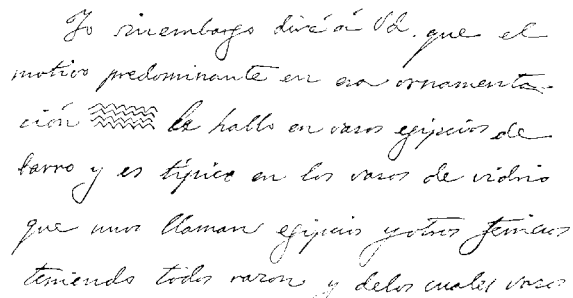 Yo sinembargo diré á Vd. que el
motivo predominante en esa ornamenta-
ción lo hallo en vasos egipcios de
barro y es típico en los vasos de vidrio
que unos llaman egipcios y otros fenicios
teniendo todos razon y de los cuales vasos